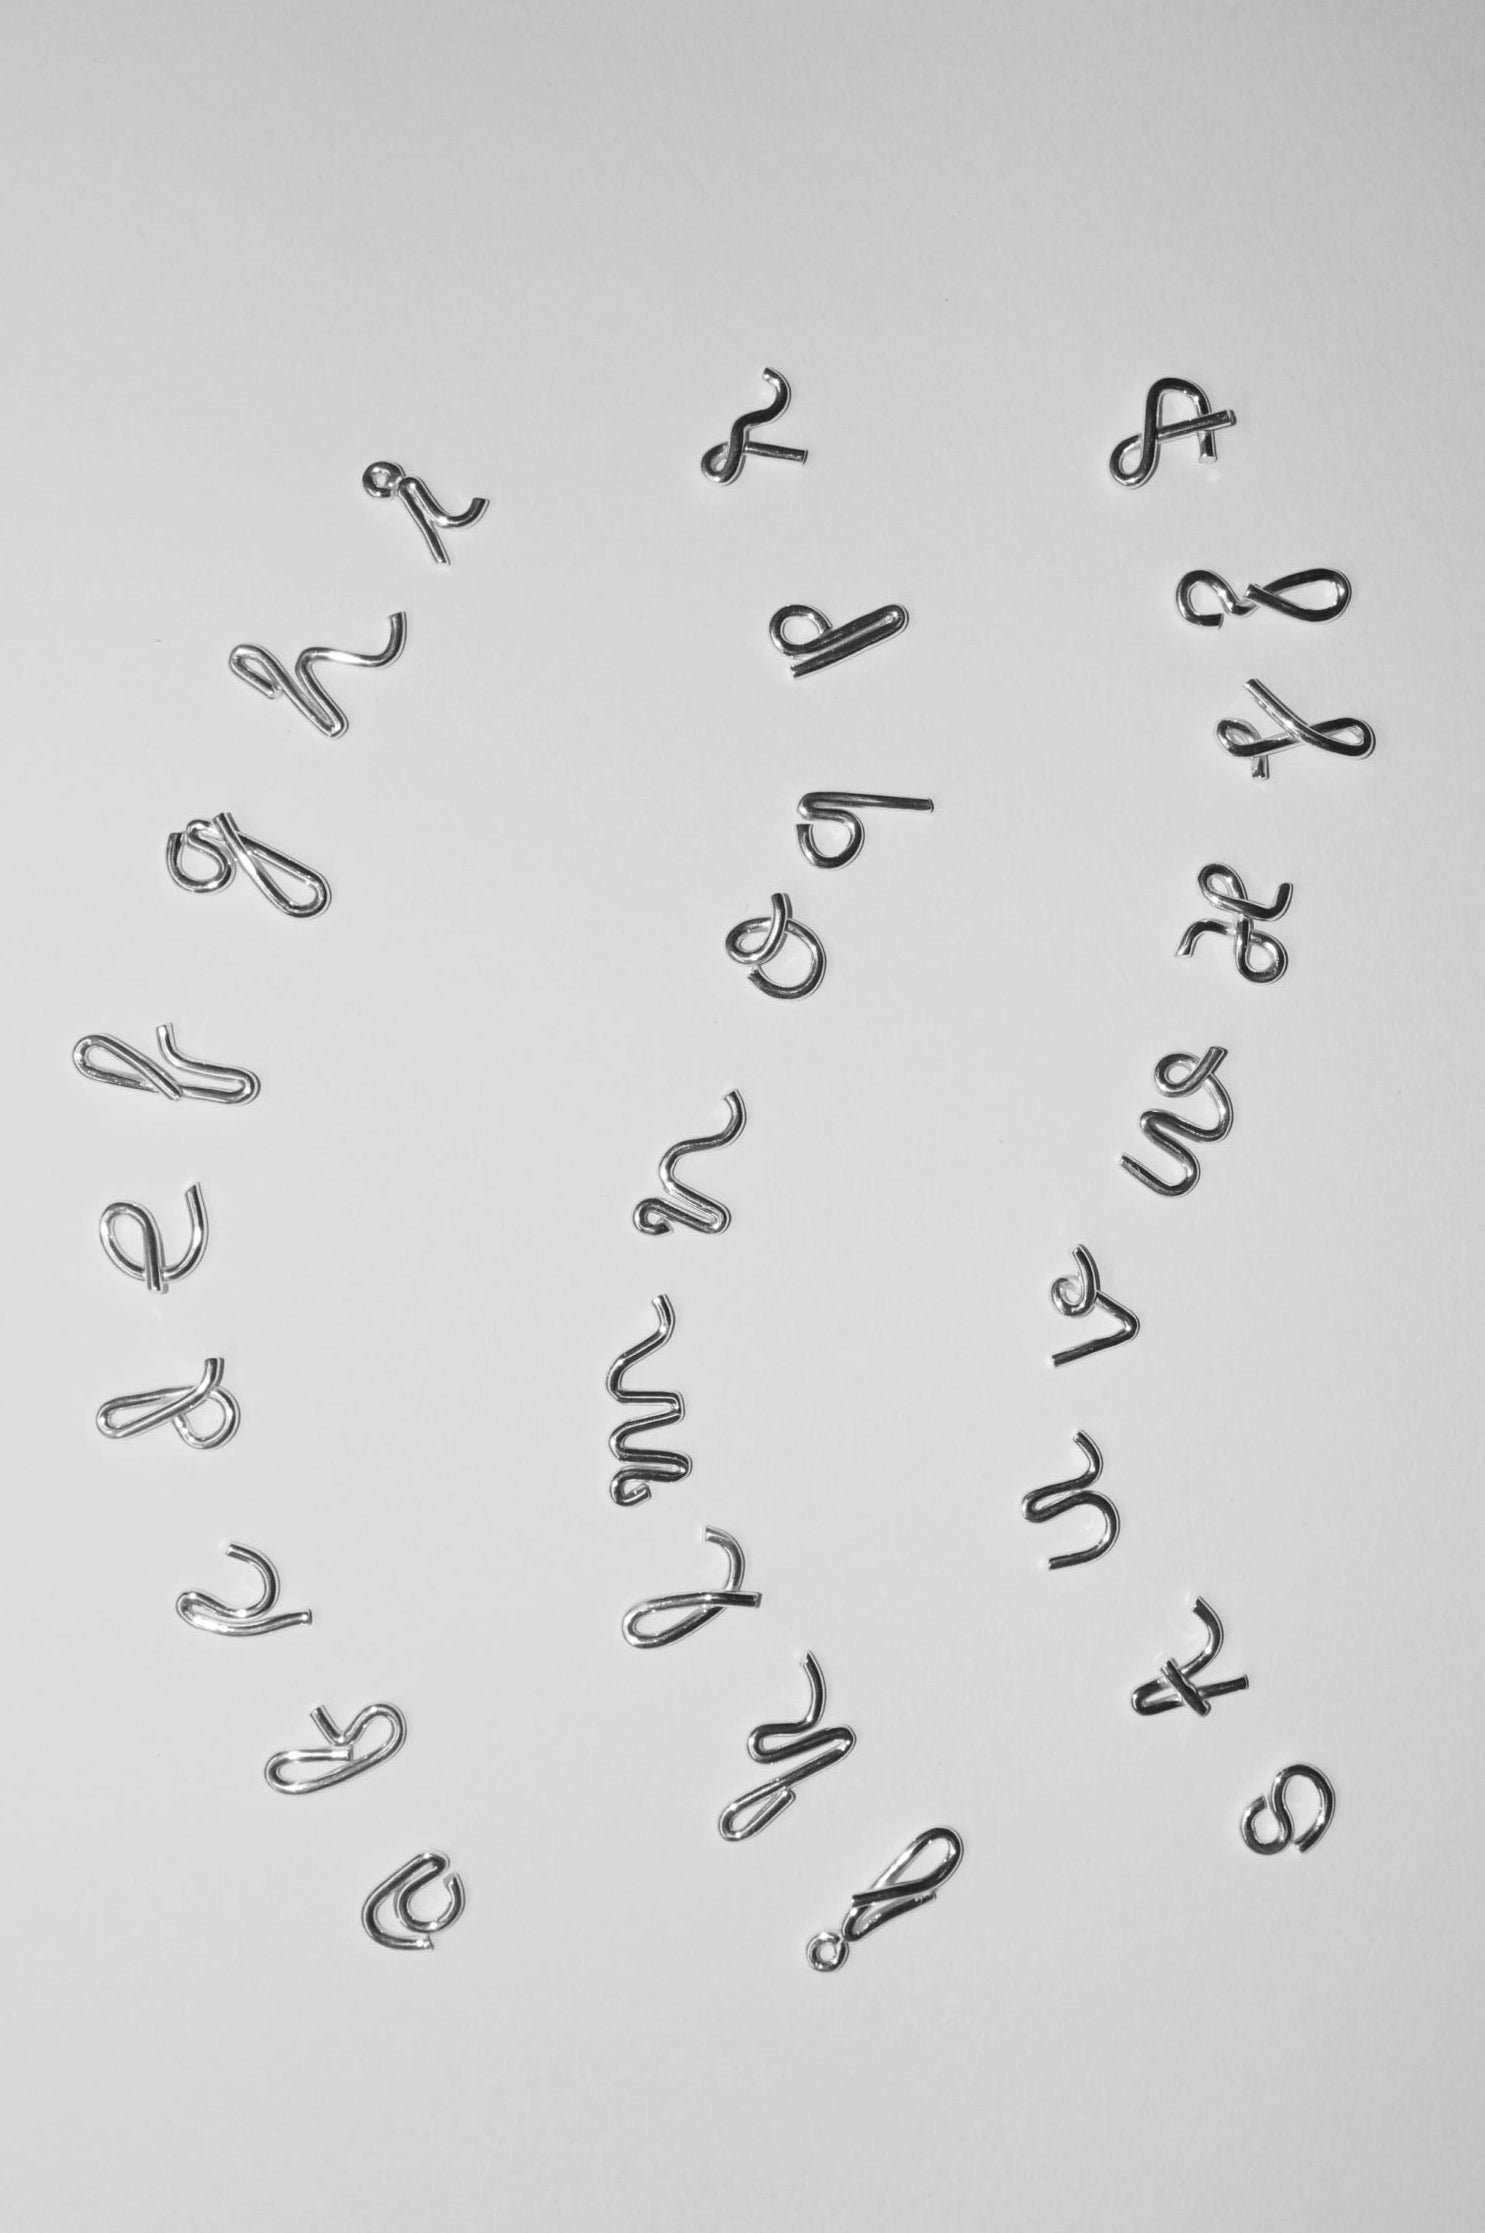 a b c d e f g h i
j k l m n o q p r
s t u v w x y z &